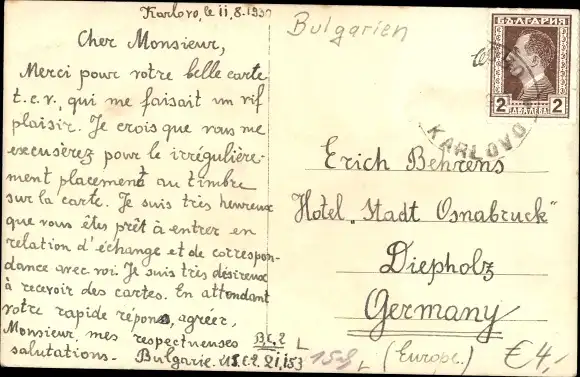 Karlovo, le 11.8.193
Cher Monsieur,
Merci pour votre belle carte
t.c.v., qui me faisait un vif
plaisir. Je crois que vous me
excusèrez pour le irrégulière-
ment placement au timbre
sur la carte. Je suis très heureux
que vous êtes prêt à entrer en
relation d'échange et de correspon-
dance avec voi. Je suis très désireux
à recevoir des cartes. En attendant
votre rapide répons, agréer,
Monsieur, mes respectueuses
salutations.
B.C.2 L
Bulgarie.
Bulgarien
БЪЛГАРИЯ
2 ДВА ЛЕВА 2
KARLOVO
Erich Behrens
Hotel „Stadt Osnabruck"
Diepholz
Germany
(Europe.)
€4,-